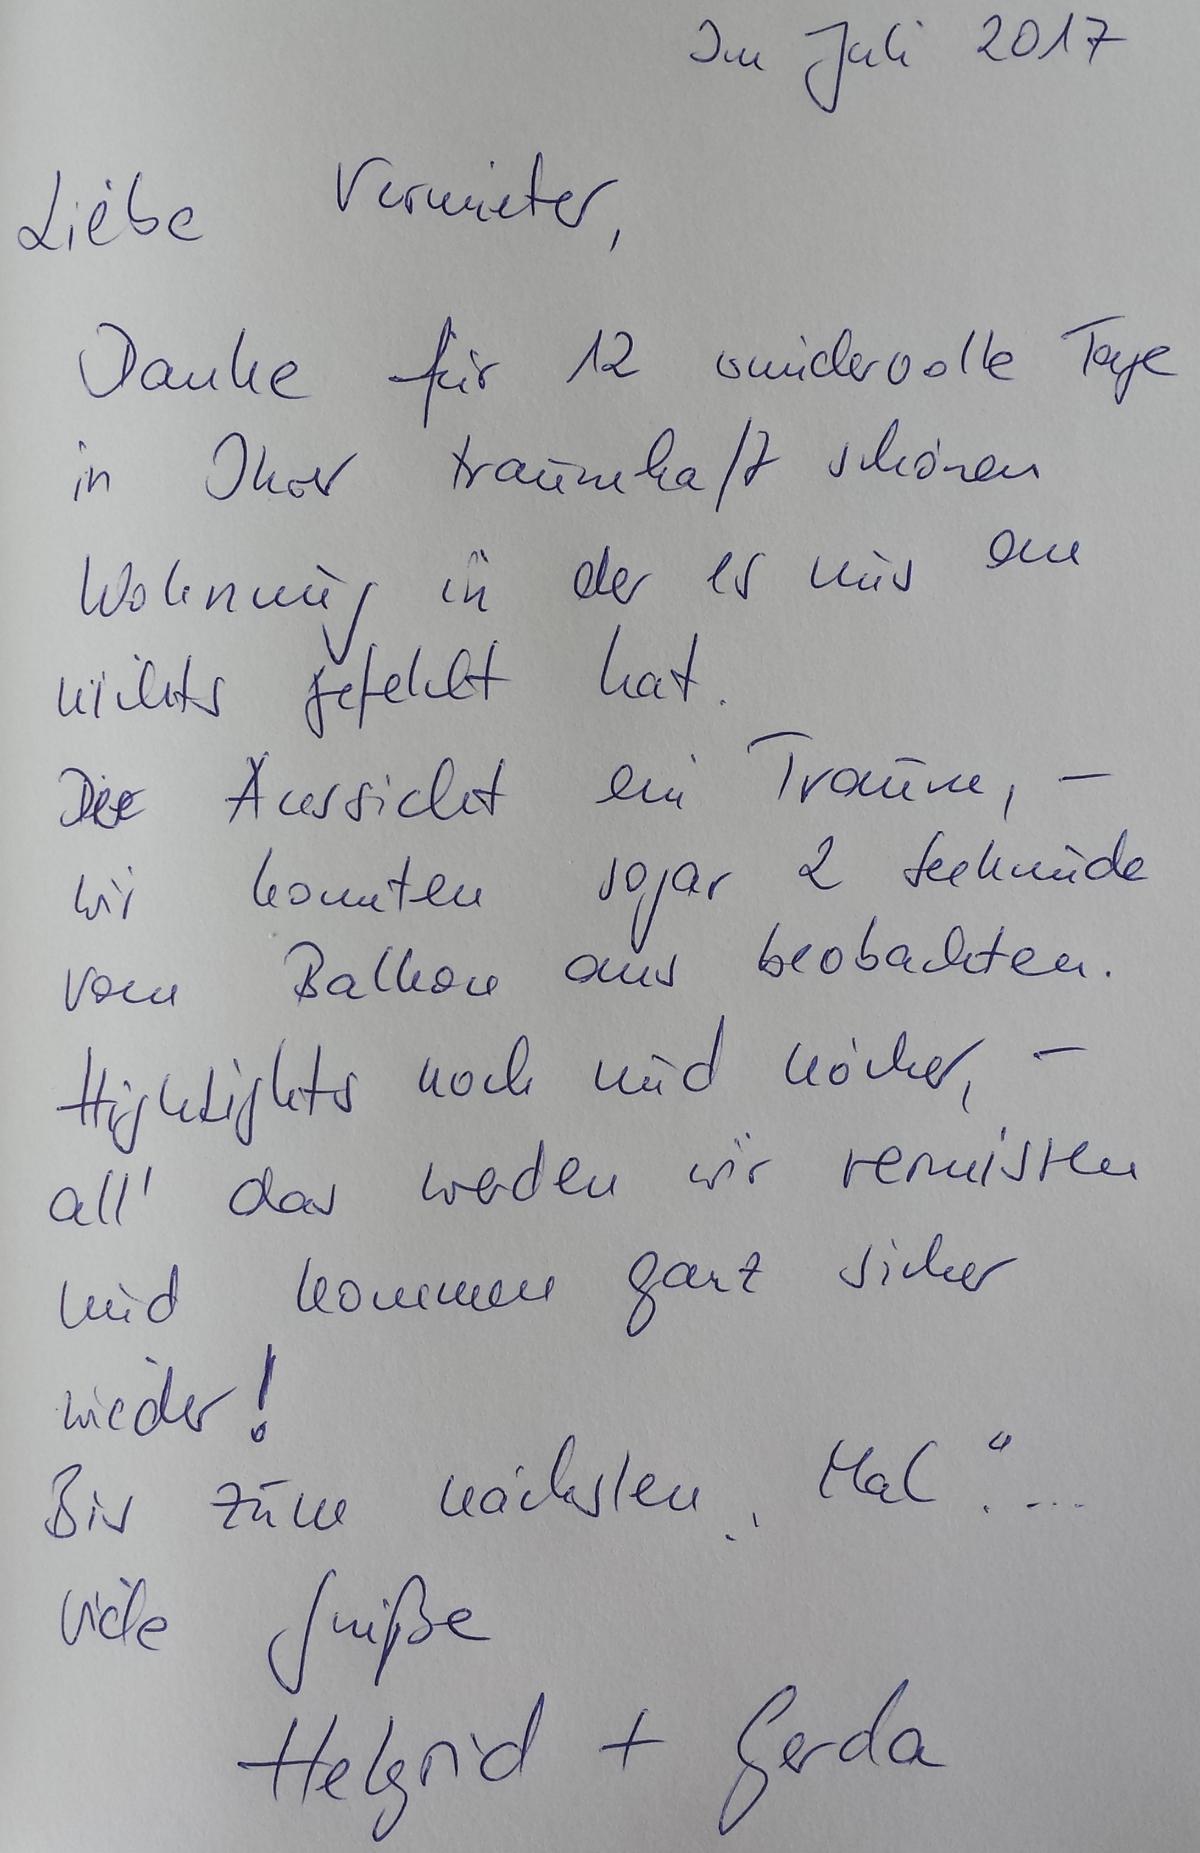 Im Juli 2017
Liebe Vermieter,
Danke für 12 wundervolle Tage
in Ihrer traumhaft schönen
Wohnung in der es uns an
nichts gefehlt hat.
Die Aussicht ein Traum, –
wir konnten sogar 2 Seehunde
vom Balkon aus beobachten.
Highlights noch und nöcher, –
all' das werden wir vermissen
und kommen ganz sicher
wieder!
Bis zum nächsten „Mal“....
Viele Grüße
Helgrid + Gerda